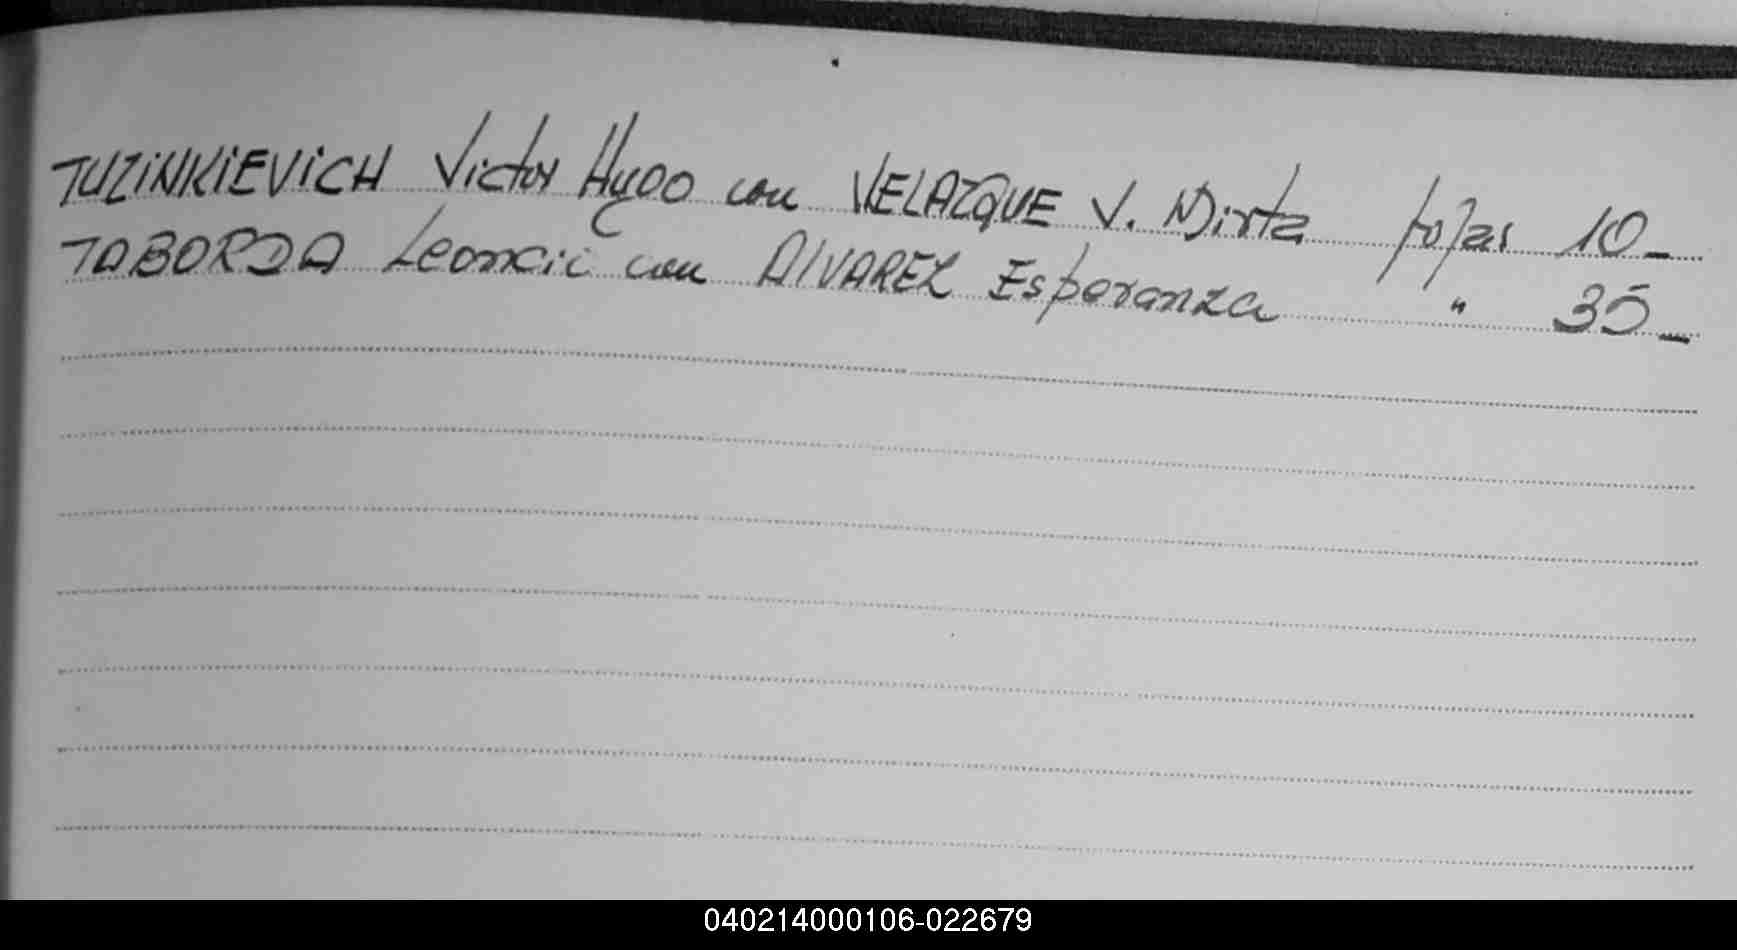 TUZiNKiEVICH Victor Hugo con VELAZQUE V. Mirta fojas 10_
TABORDA Leoncio con ALVAREZ Esperanza " 35_
040214000106-022679